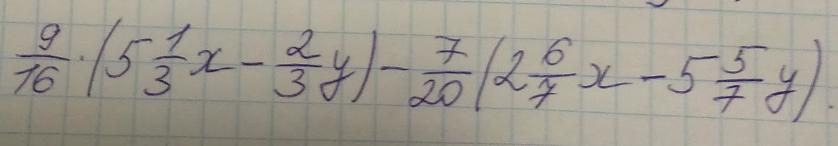 9/16 · (5 1/3 x − 2/3 y) − 7/20 (2 6/7 x − 5 5/7 y).